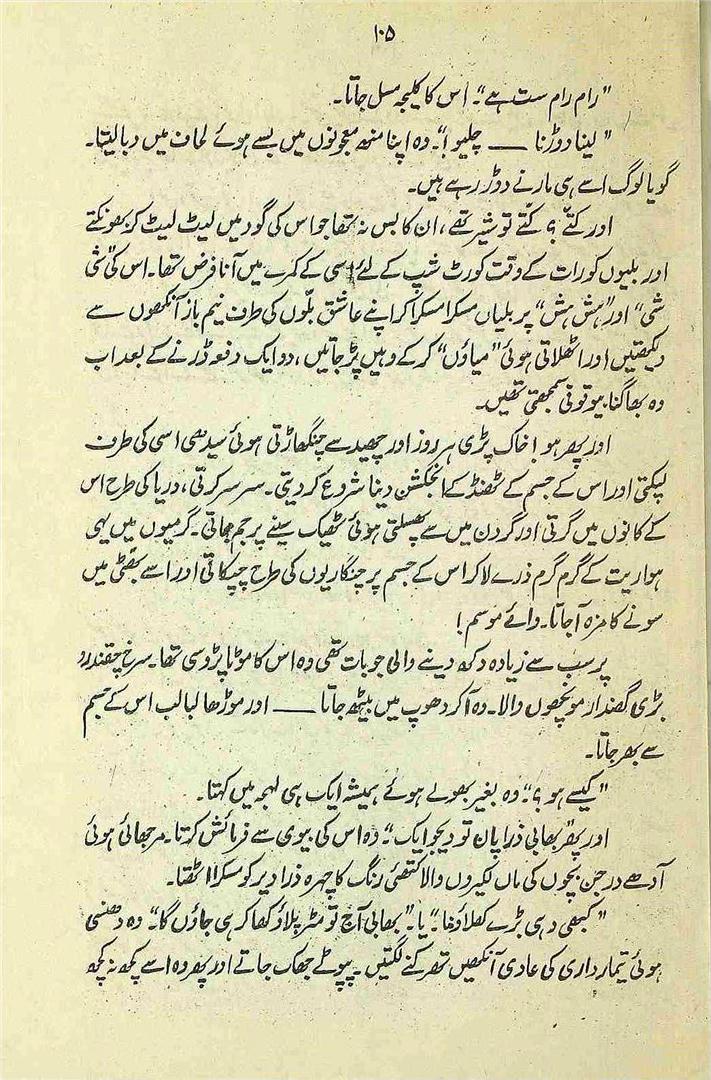 ۱۰۵
"رام رام ست ہے"۔ اس کا کلیجہ مسل جاتا۔
"لینا دوڑنا ــــــ چلیو!"۔ وہ اپنا منھ معجونوں میں بسے ہوئے لحاف میں دبا لیتا۔
گویا لوگ اسے ہی مارنے دوڑ رہے ہیں۔
اور کتّے؟ کتّے تو شیر تھے، ان کا بس نہ تھا جو اس کی گود میں لیٹ لیٹ کر بھونکتے
اور بلیوں کو رات کے وقت کورٹ شپ کے لئے اسی کے کمرے میں آنا فرض تھا۔ اس کی "شی
شی" اور "ہش ہش" پر بلیاں مسکرا مسکرا کر اپنے عاشق بلّوں کی طرف نیم باز آنکھوں سے
دیکھتیں اور اٹھلاتی ہوئی "میاؤں" کر کے وہیں پڑ جاتیں، دو ایک دفعہ ڈرنے کے بعد اب
وہ بھاگنا بیوقوفی سمجھتی تھیں۔
اور پھر ہوا! خاک پڑی ہر روز اور چھید سے چنگھاڑتی ہوئی سیدھی اسی کی طرف
لپکتی اور اس کے جسم کے ٹھنڈ کے انجکشن دینا شروع کر دیتی۔ سر سر کرتی، دریا کی طرح اس
کے کانوں میں گرتی اور گردن میں سے پھسلتی ہوئی ٹھیک سینے پر جم جاتی۔ گرمیوں میں یہی
ہوا ریت کے گرم گرم ذرے لا کر اس کے جسم پر چنگاریوں کی طرح چپکاتی اور اسے بھٹی میں
سونے کا مزہ آ جاتا۔ وائے موسم!
پر سب سے زیادہ دکھ دینے والی جو بات تھی وہ اس کا موٹا پڑوسی تھا۔ سرخ چقندر و
بڑی گھندار مونچھوں والا۔ وہ آ کر دھوپ میں بیٹھ جاتا ــــــ اور موڑھا لبالب اس کے جسم
سے بھر جاتا۔
"کیسے ہو؟"۔ وہ بغیر بھولے ہوئے ہمیشہ ایک ہی لہجہ میں کہتا۔
اور پھر "بھابی ذرا پان تو دیجو ایک"۔ وہ اس کی بیوی سے فرمائش کرتا۔ مرجھائی ہوئی
آدھے درجن بچوں کی ماں لکیروں والا کتھئی رنگ کا چہرہ ذرا دیر کو مسکرا اٹھتا۔
"کبھی دہی بڑے کھلاؤ نا۔" یا۔ "بھابی آج تو مٹر پلاؤ کھا کر ہی جاؤں گا"۔ وہ دھنسی
ہوئی تیمارداری کی عادی آنکھیں تھرکنے لگتیں۔ پپوٹے جھک جاتے اور پھر وہ اسے کچھ نہ کچھ